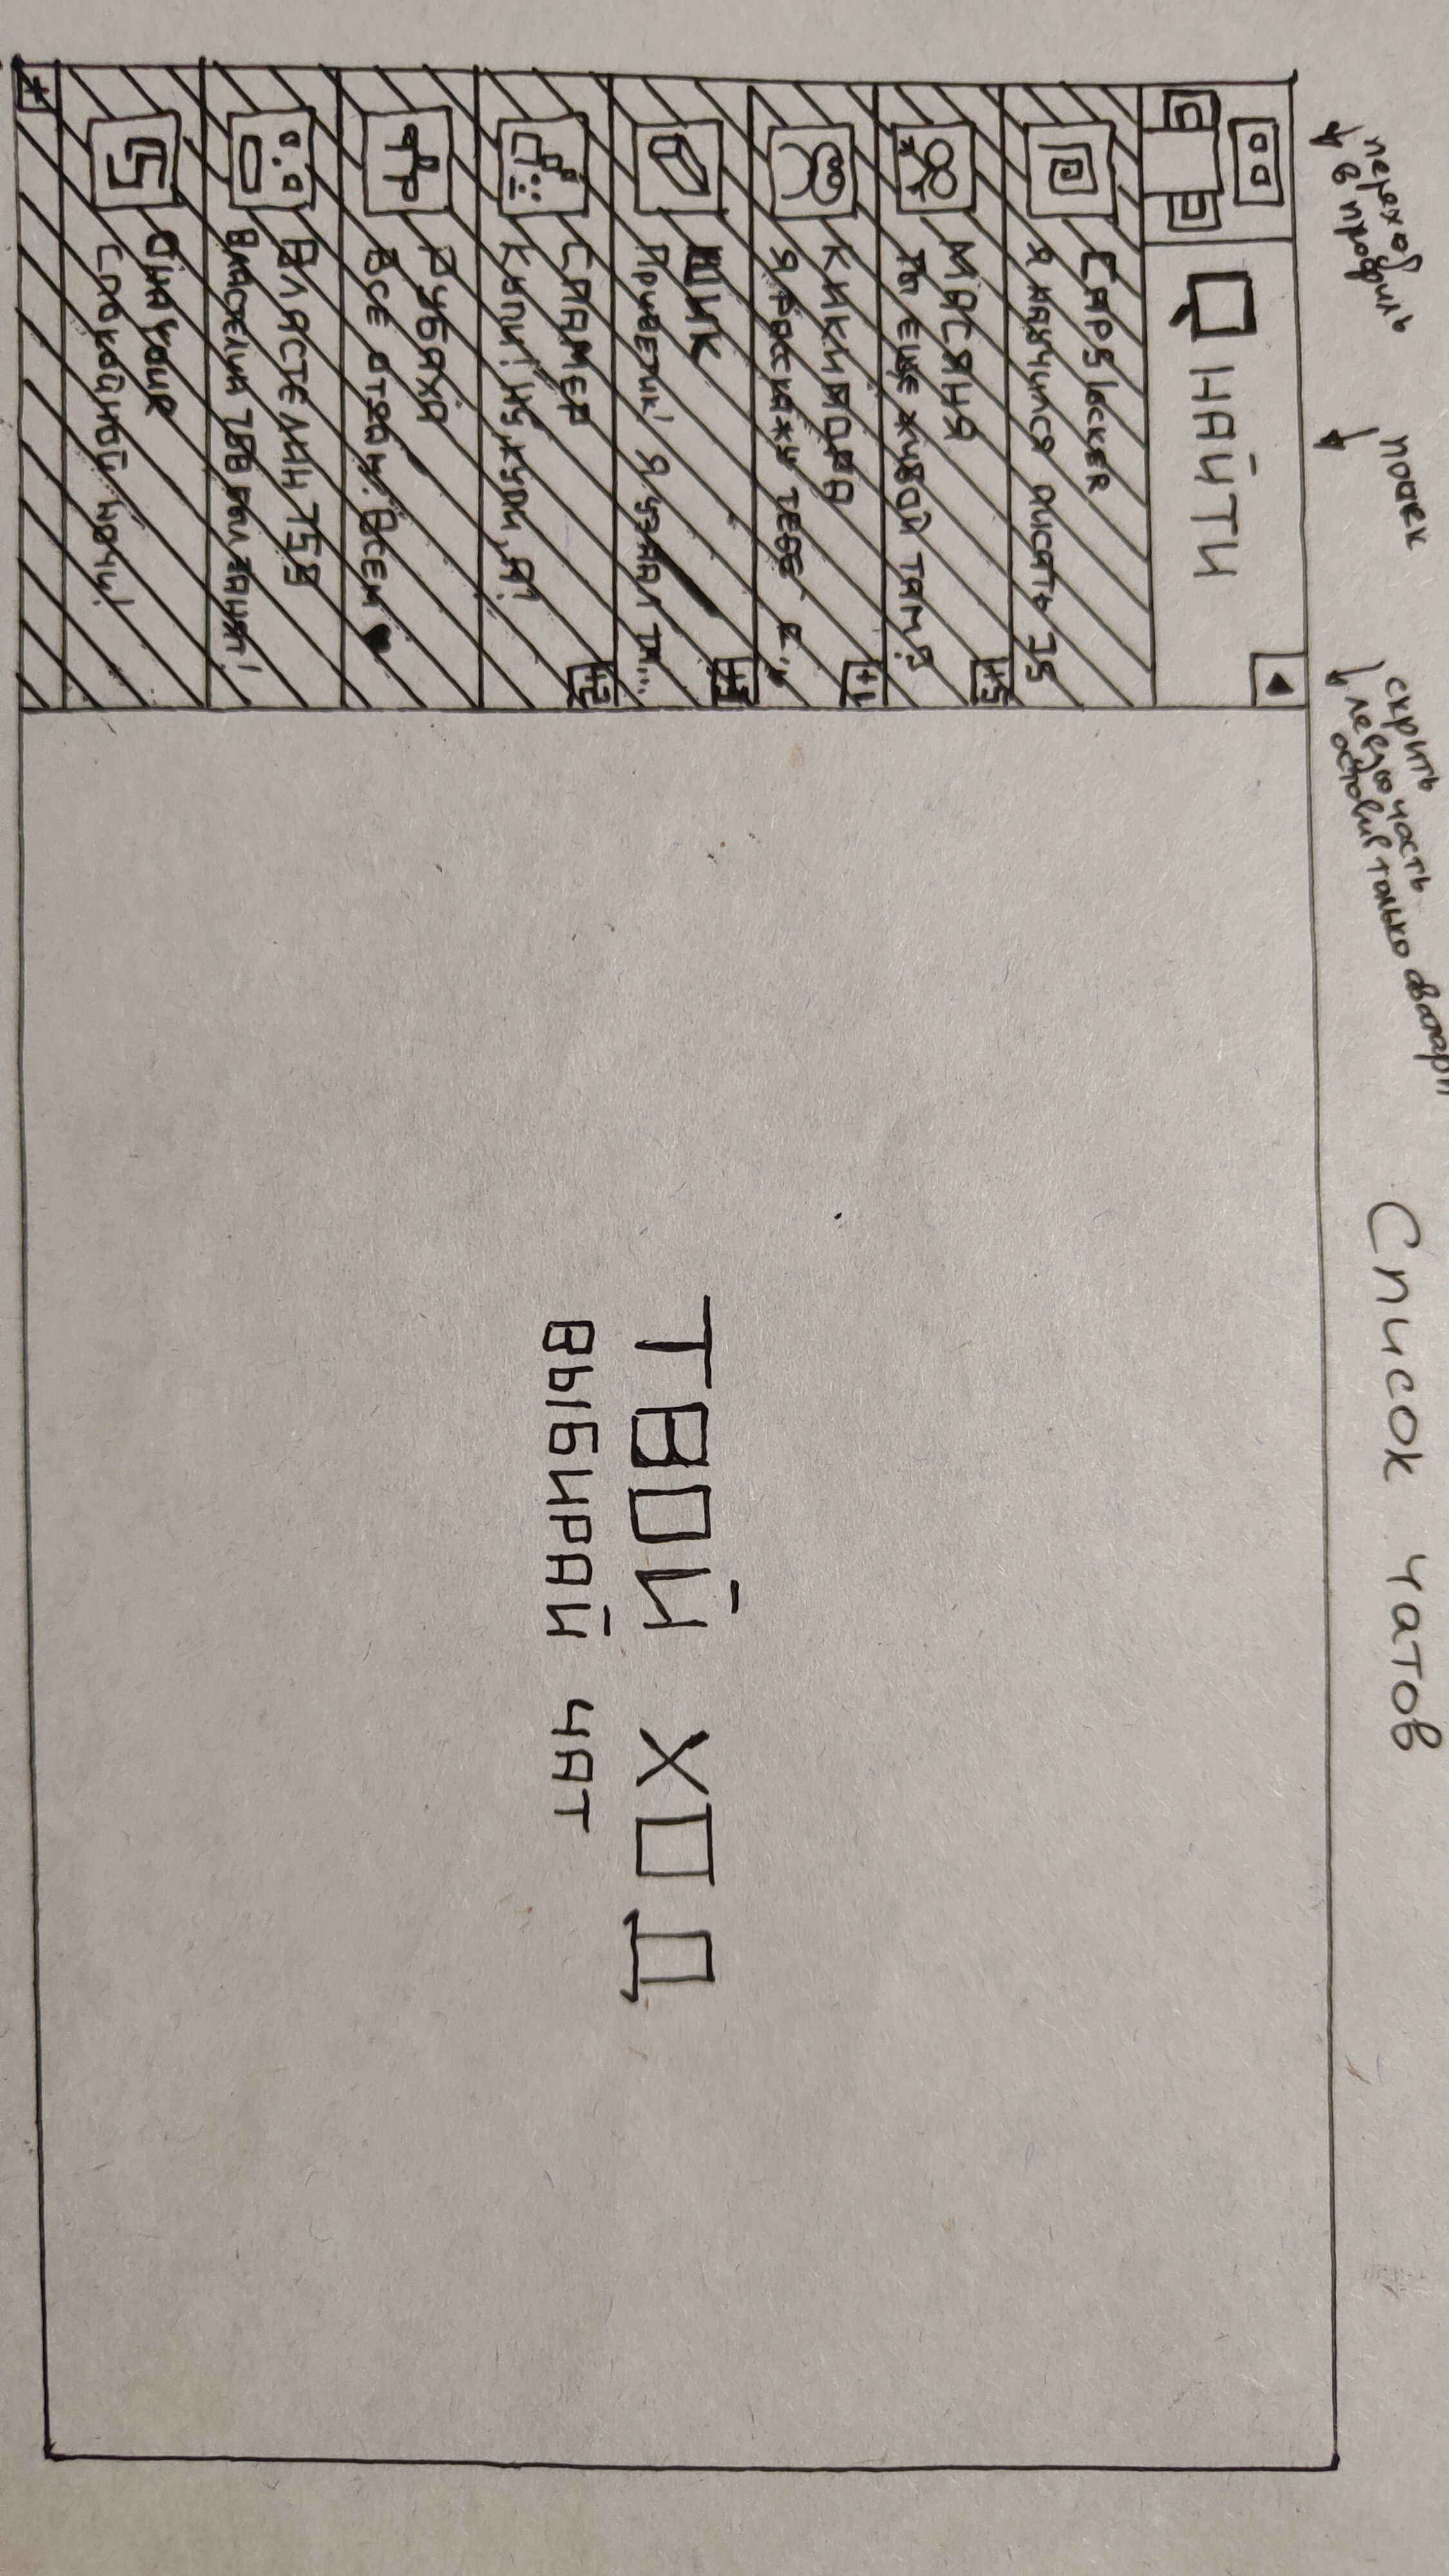 Список чатов
переход
в профиль
поиск
скрить
левую часть
оставив только аватары
НАЙТИ
CAPSlocKER
Я НАУЧИЛСЯ ПИСАТЬ JS
+5
МАСЯНЯ
ТЫ ЕЩЕ ЖИВОЙ ТАМ?
+1
КИКИМОРА
Я РАССКАЖУ ТЕБЕ С...
ШИК
ПРИВЕТИК! Я УЗНАЛ ТА...
+2
СПАМЕР
КУПИ! НУ, КУПИ, А!
РУБАХА
ВСЕ ОТДАМ. ВСЕМ ♥
ВЛАСТЕЛИН 759
ВЛАСТЕЛИН 759 БЫЛ ЗАНЯТ!
OHAYOUR
СПОКОЙНОЙ НОЧИ!
+
ТВОЙ ХОД
ВЫБИРАЙ ЧАТ